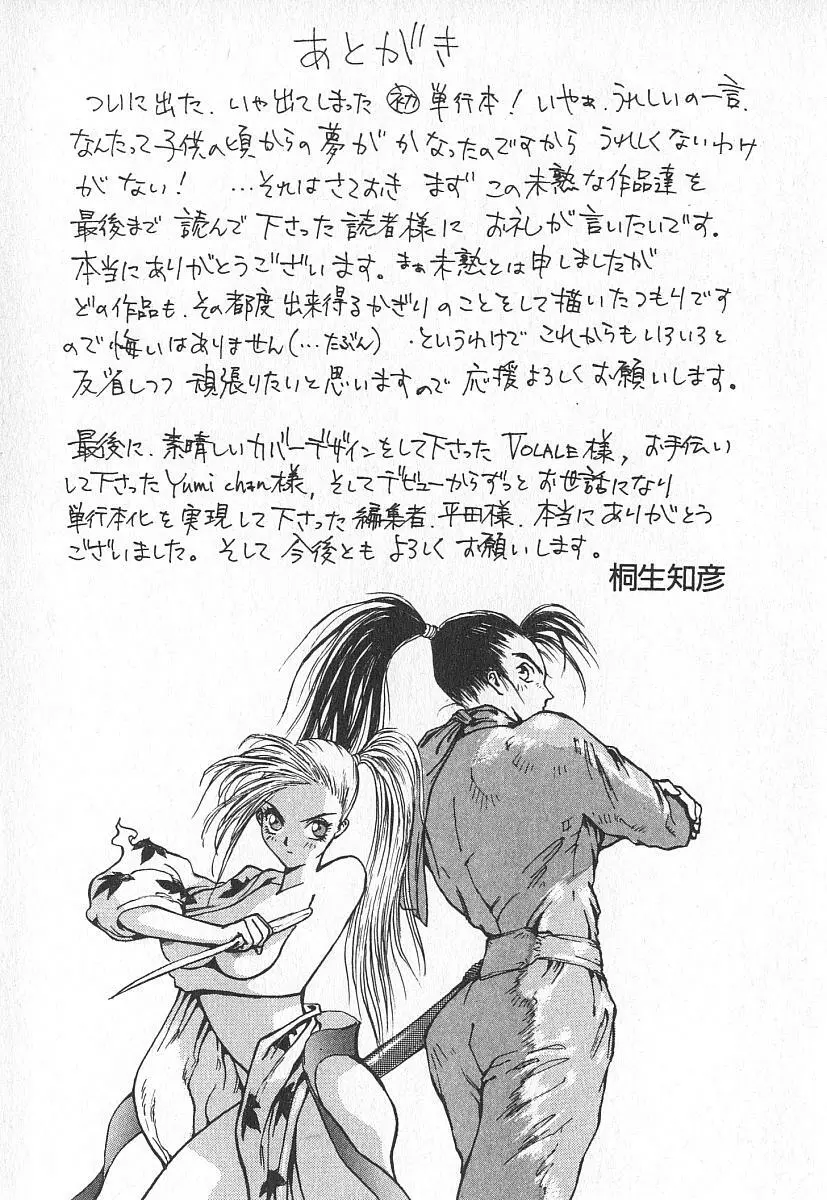 あとがき
ついに出た、いや出てしまった㊙初単行本！いやぁ、うれしいの一言、
なんたって子供の頃からの夢がかなったのですから うれしくないわけ
がない！ …それはさておき まず この未熟な作品達を
最後まで 読んで下さった読者様に お礼が言いたいです。
本当にありがとうございます。まぁ未熟とは申しましたが
どの作品も、その都度出来得るかぎりのことをして描いたつもりです
ので悔いはありません(…たぶん) ・というわけで これからもいろいろと
反省しつつ 頑張りたいと思いますので 応援よろしくお願いします。
最後に、素晴しいカバーデザインをして下さった VOLALE様, お手伝い
して下さったYumi chan様, そしてデビューからずっとお世話になり
単行本化を実現して下さった編集者、平田様、本当にありがとう
ございました。そして 今後とも よろしく お願いします。
桐生知彦